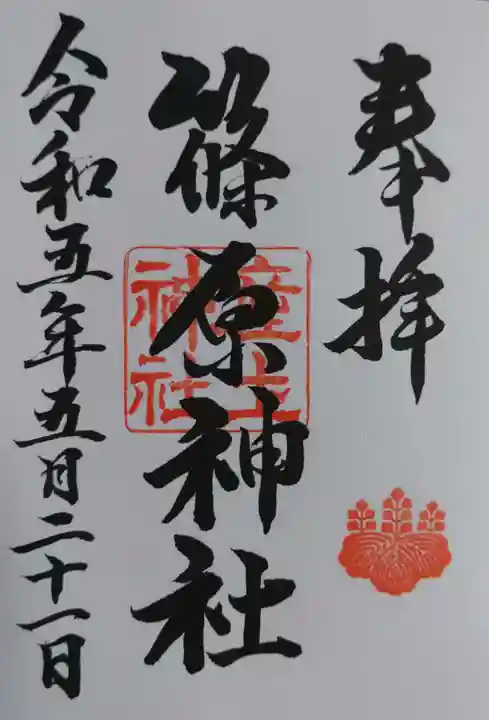 奉拝
篠原神社
産土
神社
令和五年五月二十一日